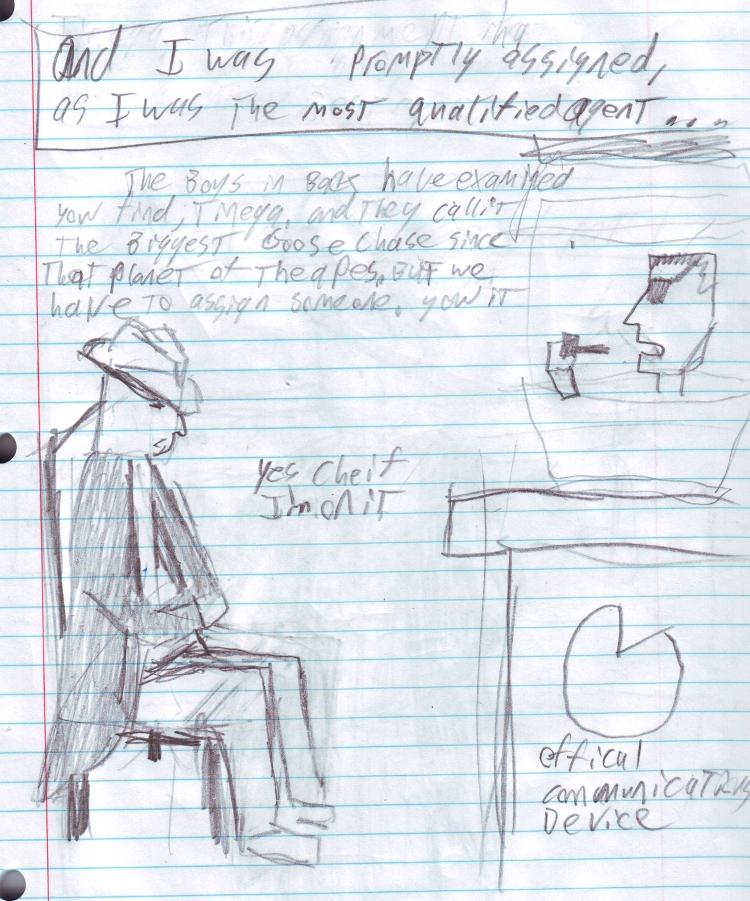 And I was promptly assigned,
as I was the most qualified agent....
The Boys in Back have examined
your find, Tmega, and they call it
the Biggest Goose chase since
that planet of the apes. But we
have to assign someone. your it
yes cheif
I'm on it
effical
communications
Device